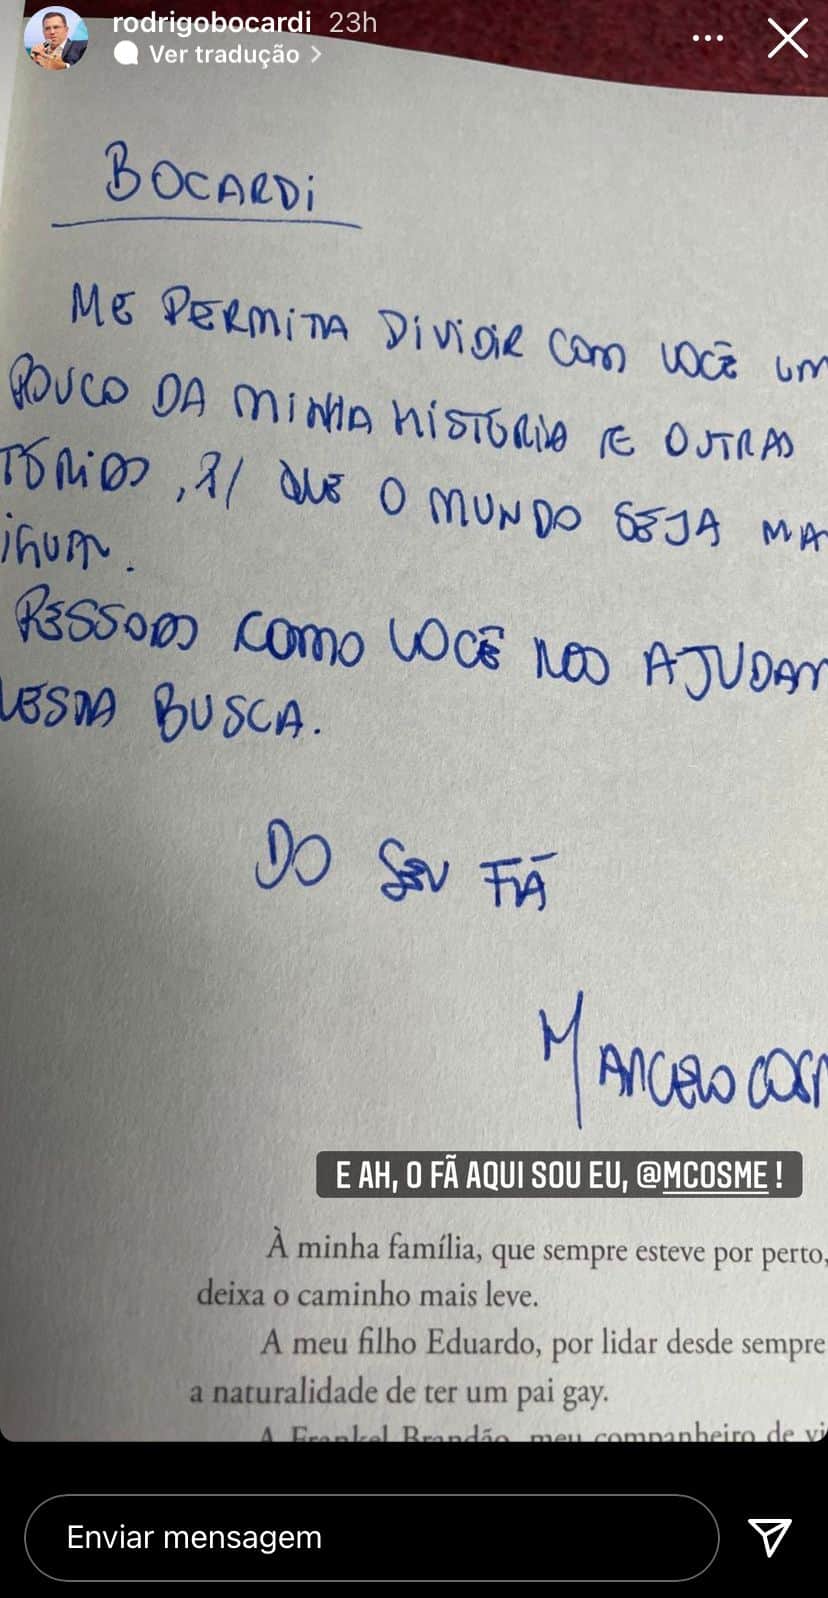 rodrigobocardi 23h
Ver tradução
BOCARDi
ME PERMITA DiViDiR COM VOCÊ UM
POUCO DA MINHA HISTÓRIA E OUTRAS
TÓRIAS, P/ QUE O MUNDO SEJA MA
IGUAL.
PESSOAS COMO VOCÊ NOS AJUDAM
NESTA BUSCA.
DO SEU FÃ
MARCELO COSM
E AH, O FÃ AQUI SOU EU, @MCOSME !
À minha família, que sempre esteve por perto,
deixa o caminho mais leve.
A meu filho Eduardo, por lidar desde sempre
a naturalidade de ter um pai gay.
A Frankel Brandão, meu companheiro de vi
Enviar mensagem